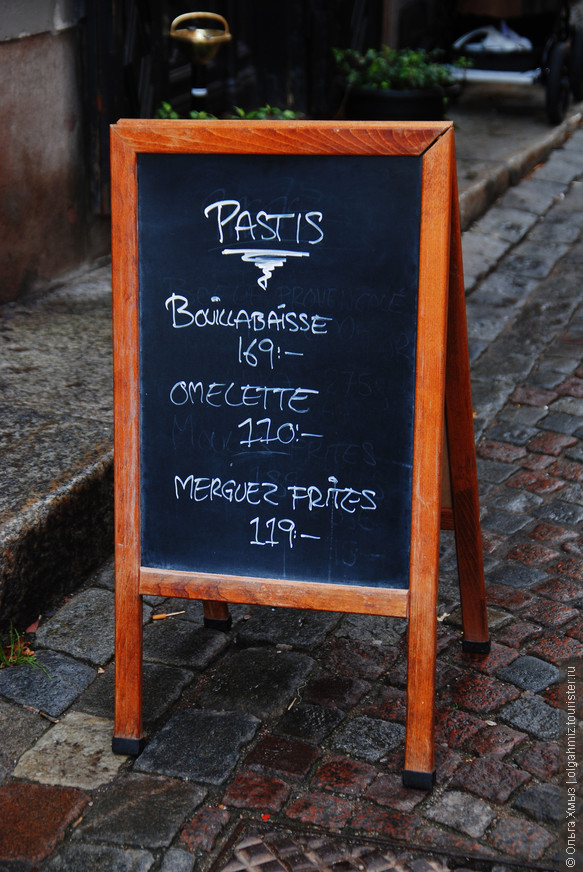 PASTIS
BOUILLABAISSE
169:-
OMELETTE
110:-
MERGUEZ FRITES
119:-
© Ольга Хмыз | olgahmiz.tourister.ru